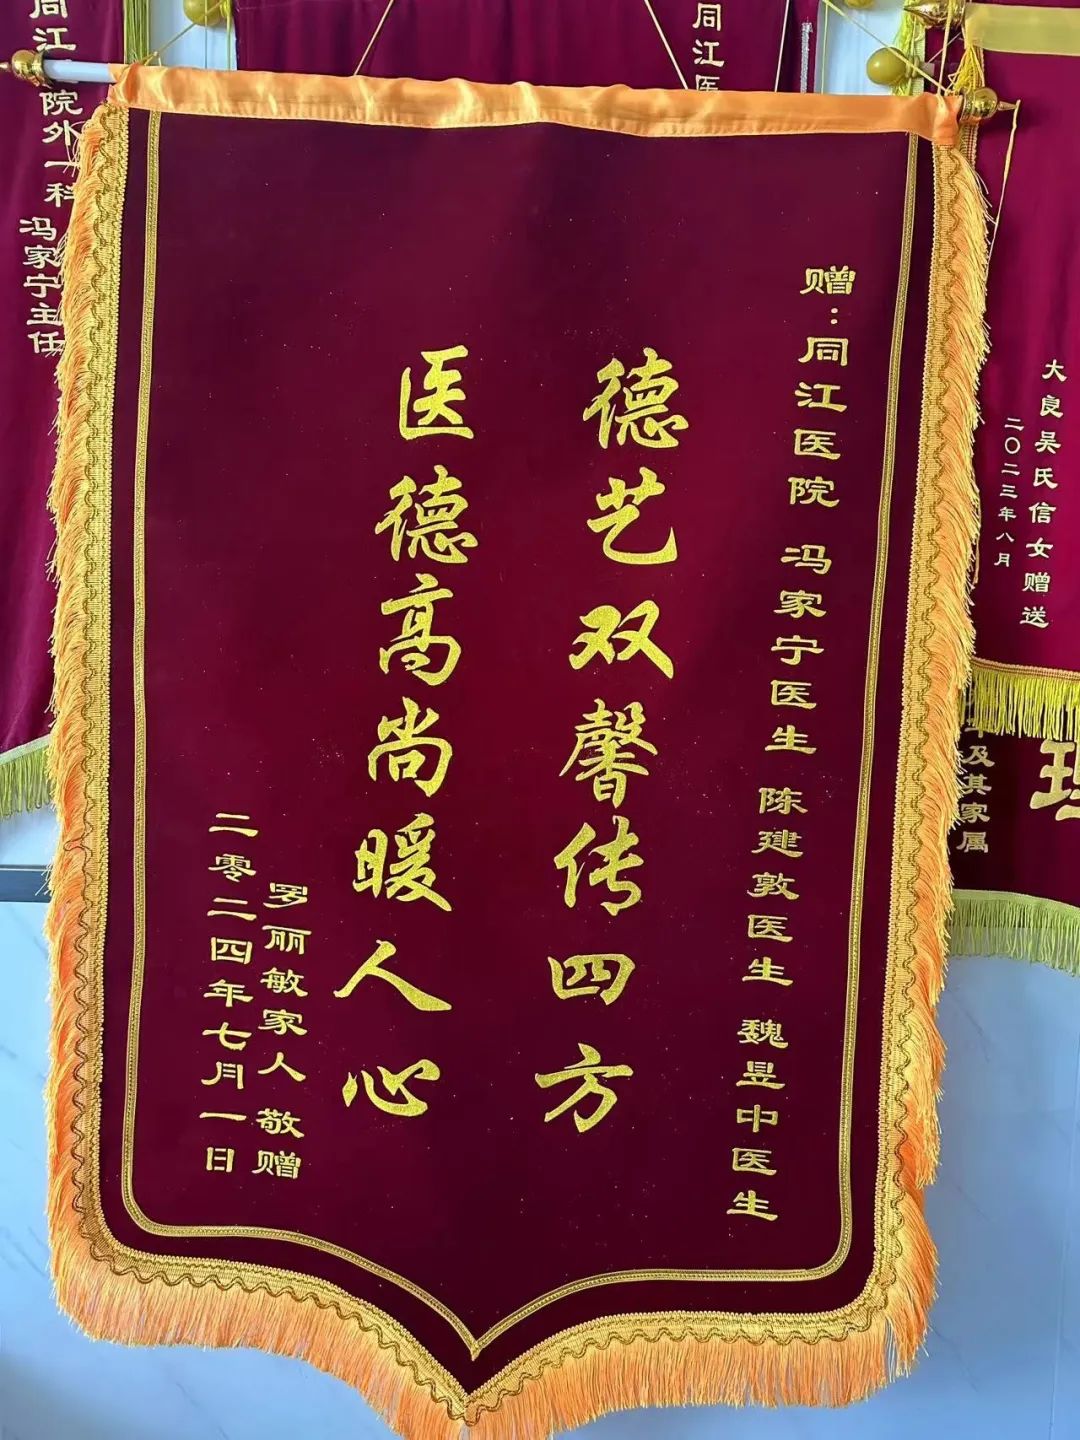 赠：同江医院 冯家宁医生 陈建敦医生 魏昱中医生
德艺双馨传四方
医德高尚暖人心
罗丽敏家人 敬赠
二零二四年七月一日
同江
院外一科
冯家宁主任
同江医
大良吴氏信女赠送
二〇二三年八月
及其家属
理